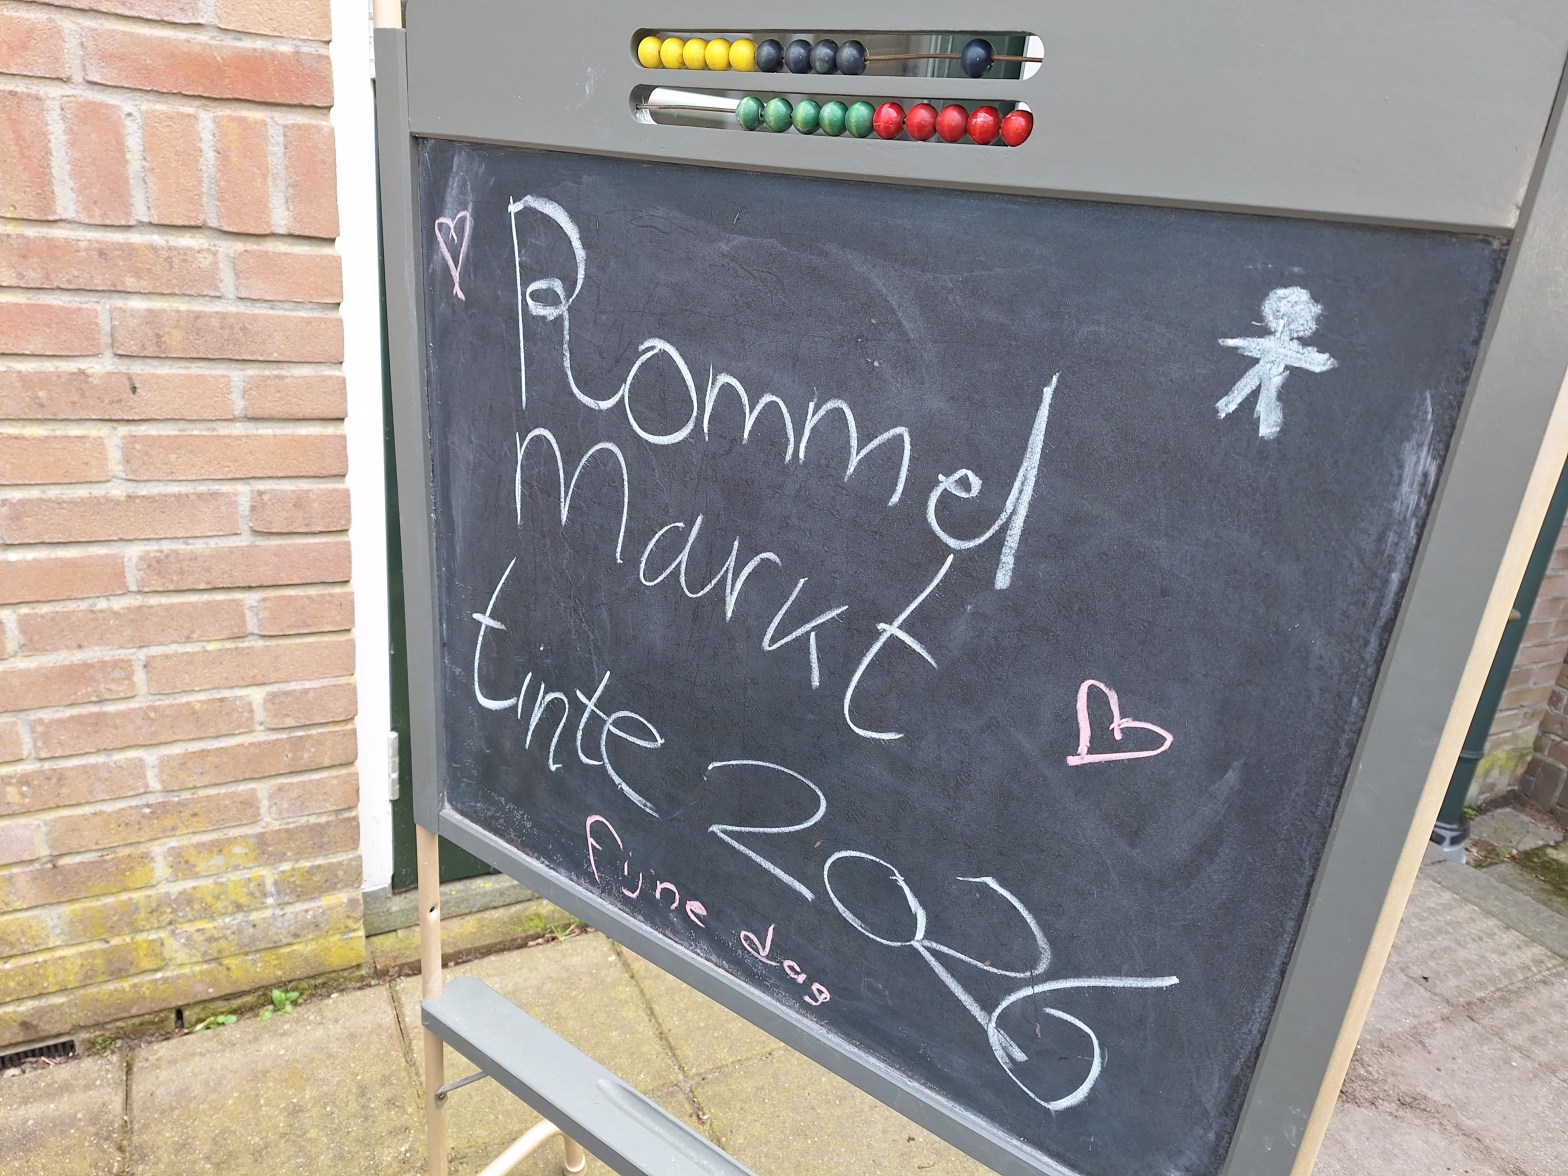 Rommel
markt
tinte 2026
fijne dag